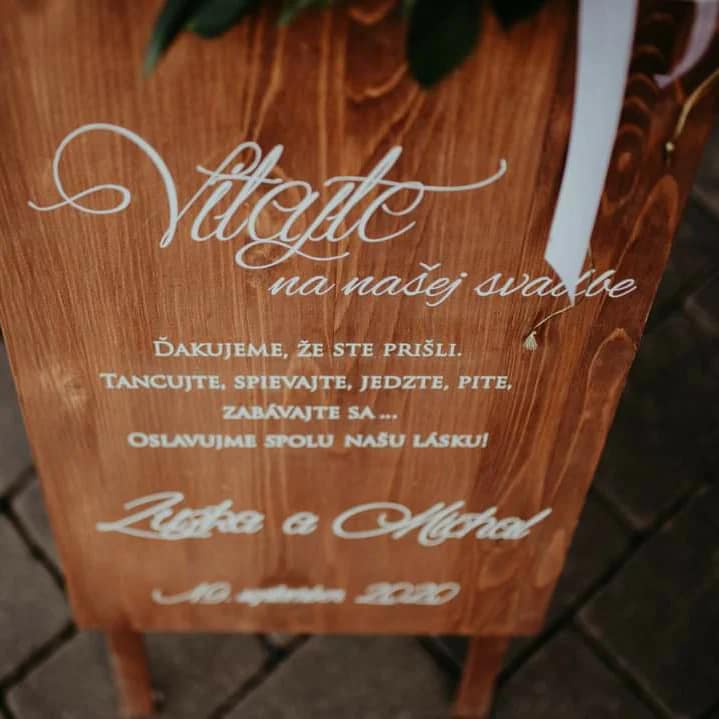 Vitajte
na našej svadbe
ĎAKUJEME, ŽE STE PRIŠLI.
TANCUJTE, SPIEVAJTE, JEDZTE, PITE,
ZABÁVAJTE SA ...
OSLAVUJME SPOLU NAŠU LÁSKU!
a Michal
2020